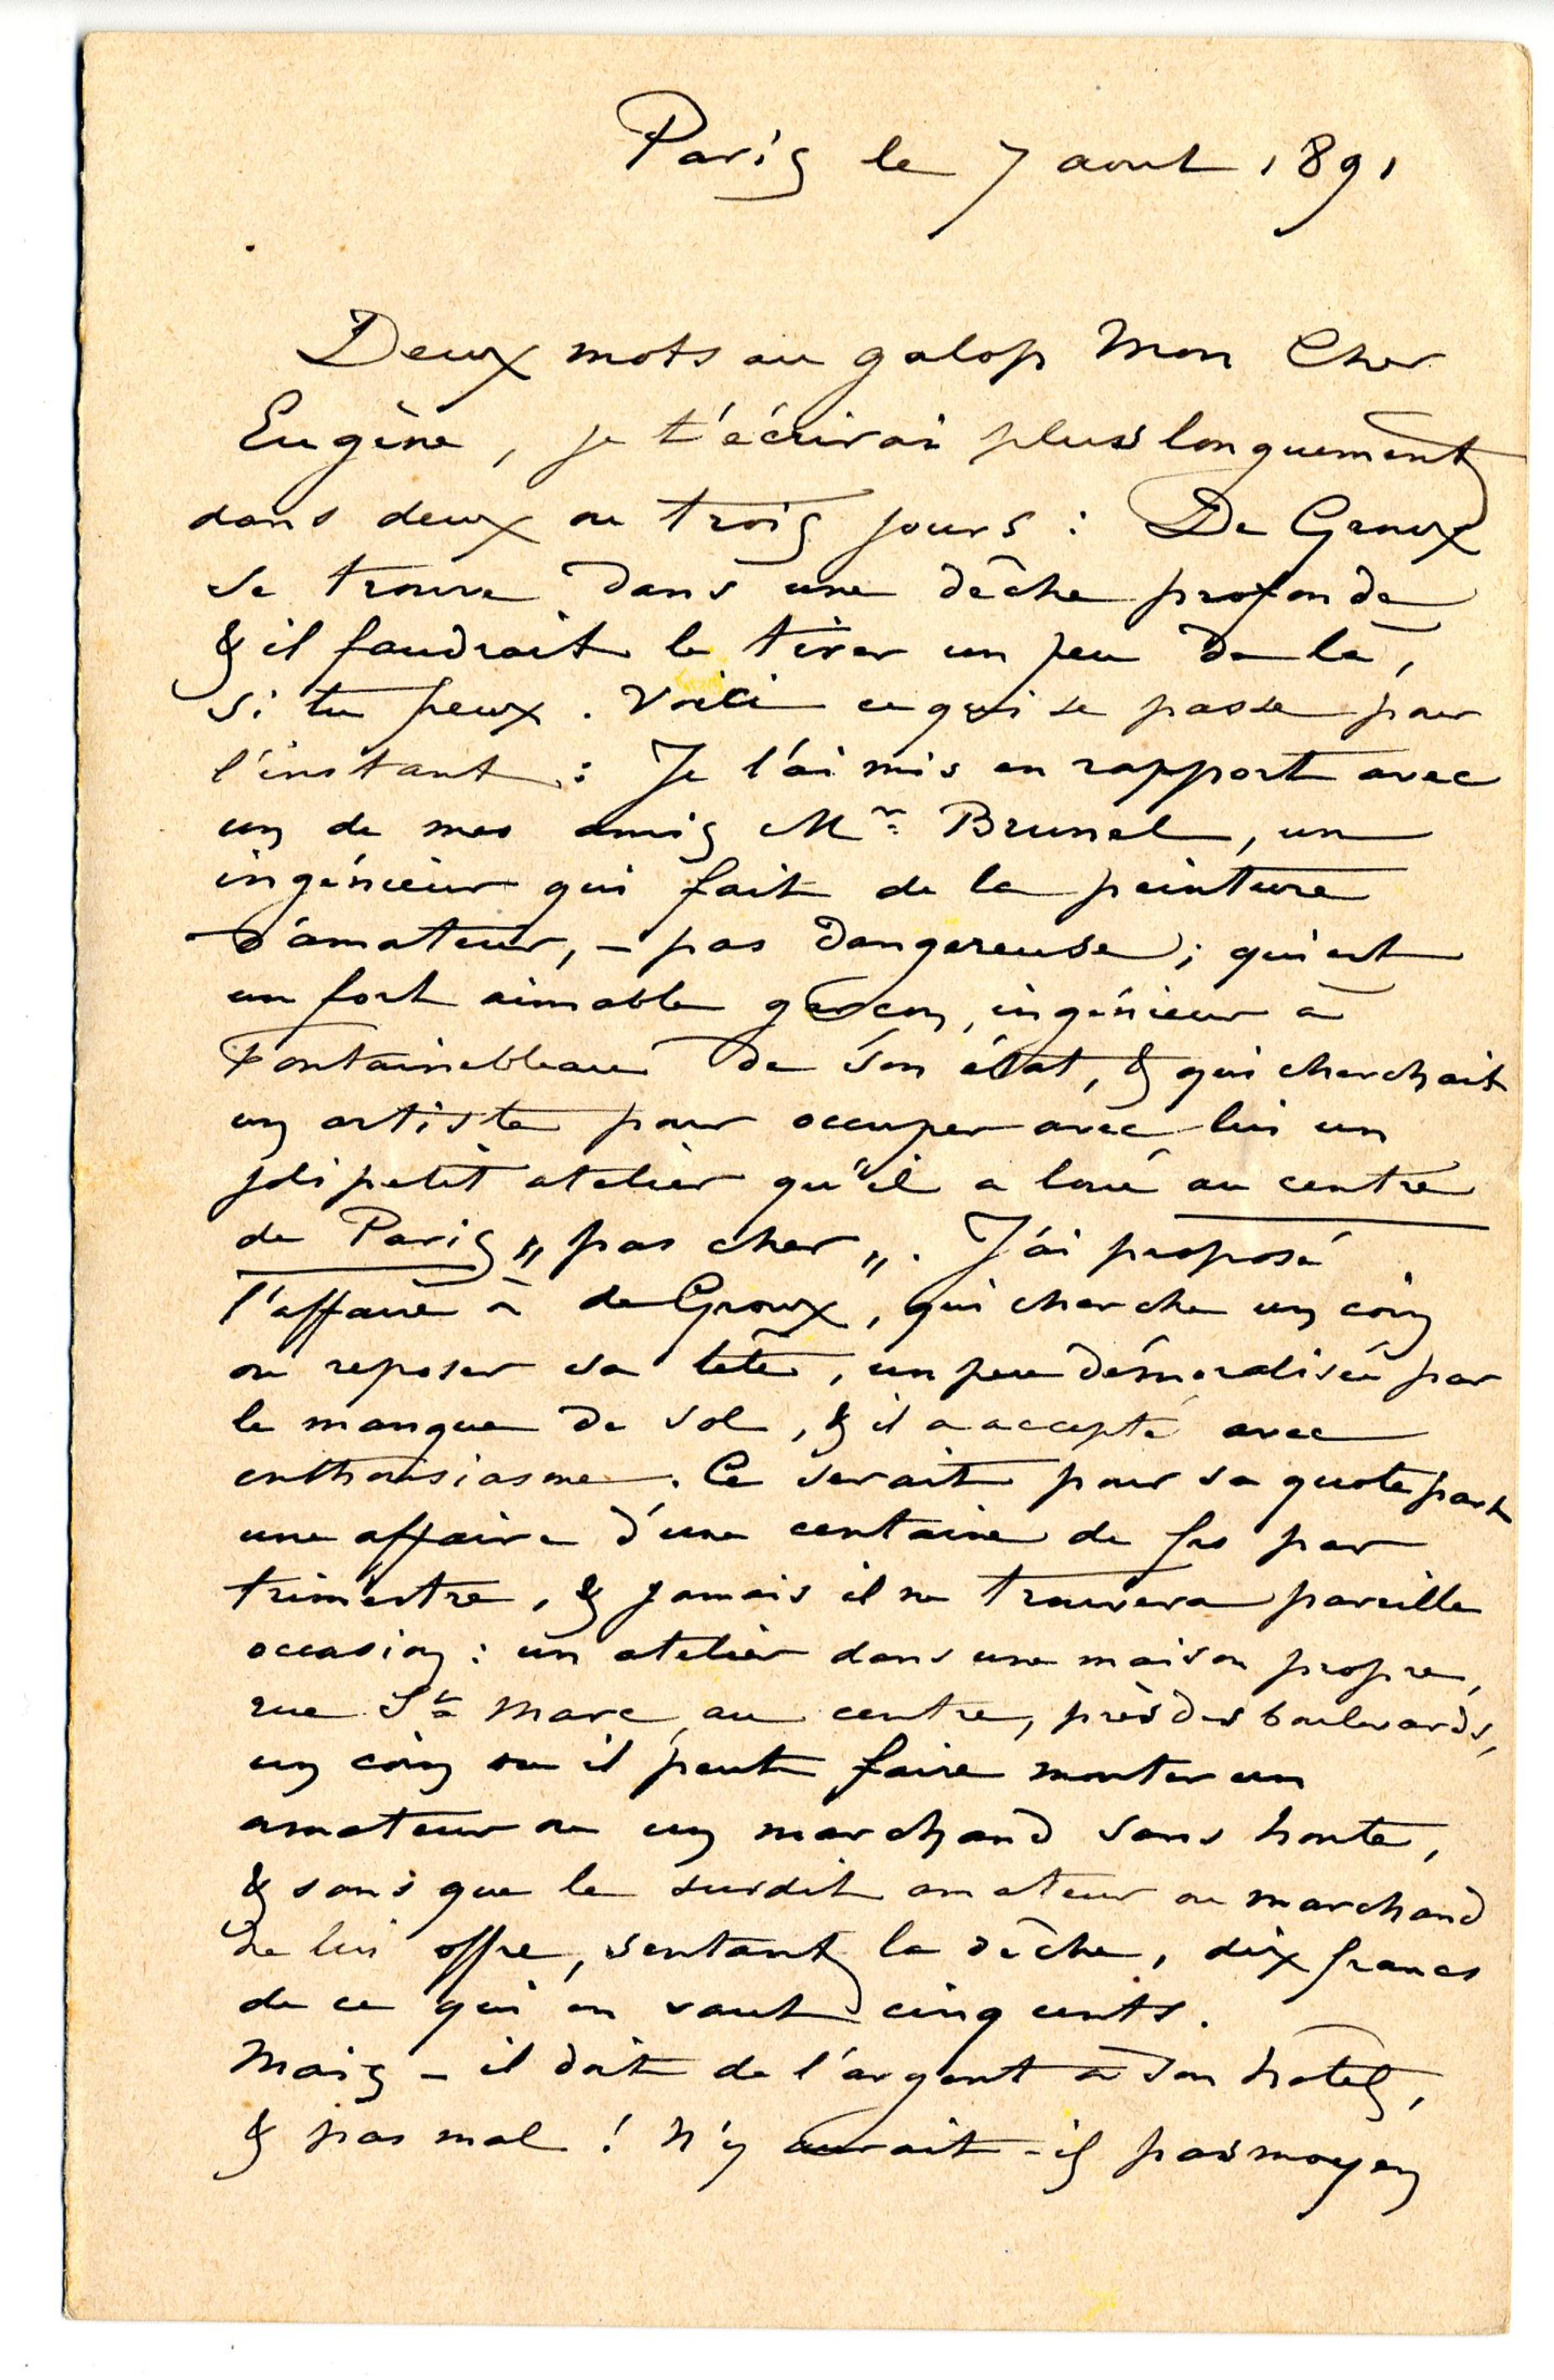 Paris le 7 aout 1891
Deux mots au galop Mon Cher
Eugène, je t'écrirai plus longuement
dans deux ou trois jours : De Groux
se trouve dans une dêche profonde
& il faudrait le tirer un peu de là,
si tu peux. Voici ce qui se passe pour
l'instant : Je l'ai mis en rapport avec
un de mes amis Mr Brunel, un
ingénieur qui fait de la peinture
d'amateur, – pas dangereuse ; qui est
un fort aimable garçon, ingénieur à
Fontainebleau de son état, & qui cherchait
un artiste pour occuper avec lui un
joli petit atelier qu'il a loué au centre
de Paris „ pas cher „. J'ai proposé
l'affaire à de Groux, qui cherche un coin
ou reposer sa tête, un peu démoralisée par
le manque de sol, & il a accepté avec
enthousiasme. Ce serait pour sa quote part
une affaire d'une centaine de frs par
trimestre, & jamais il ne trouvera pareille
occasion : un atelier dans une maison propre,
rue St Marc, au centre, près des boulevards,
un coin ou il peut faire monter un
amateur ou un marchand sans honte,
& sans que le susdit amateur ou marchand
ne lui offre, sentant la dêche, dix francs
de ce qui en vaut cinq cents.
Mais – il doit de l'argent à son hôtel,
& pas mal ! N'y aurait-il pas moyen